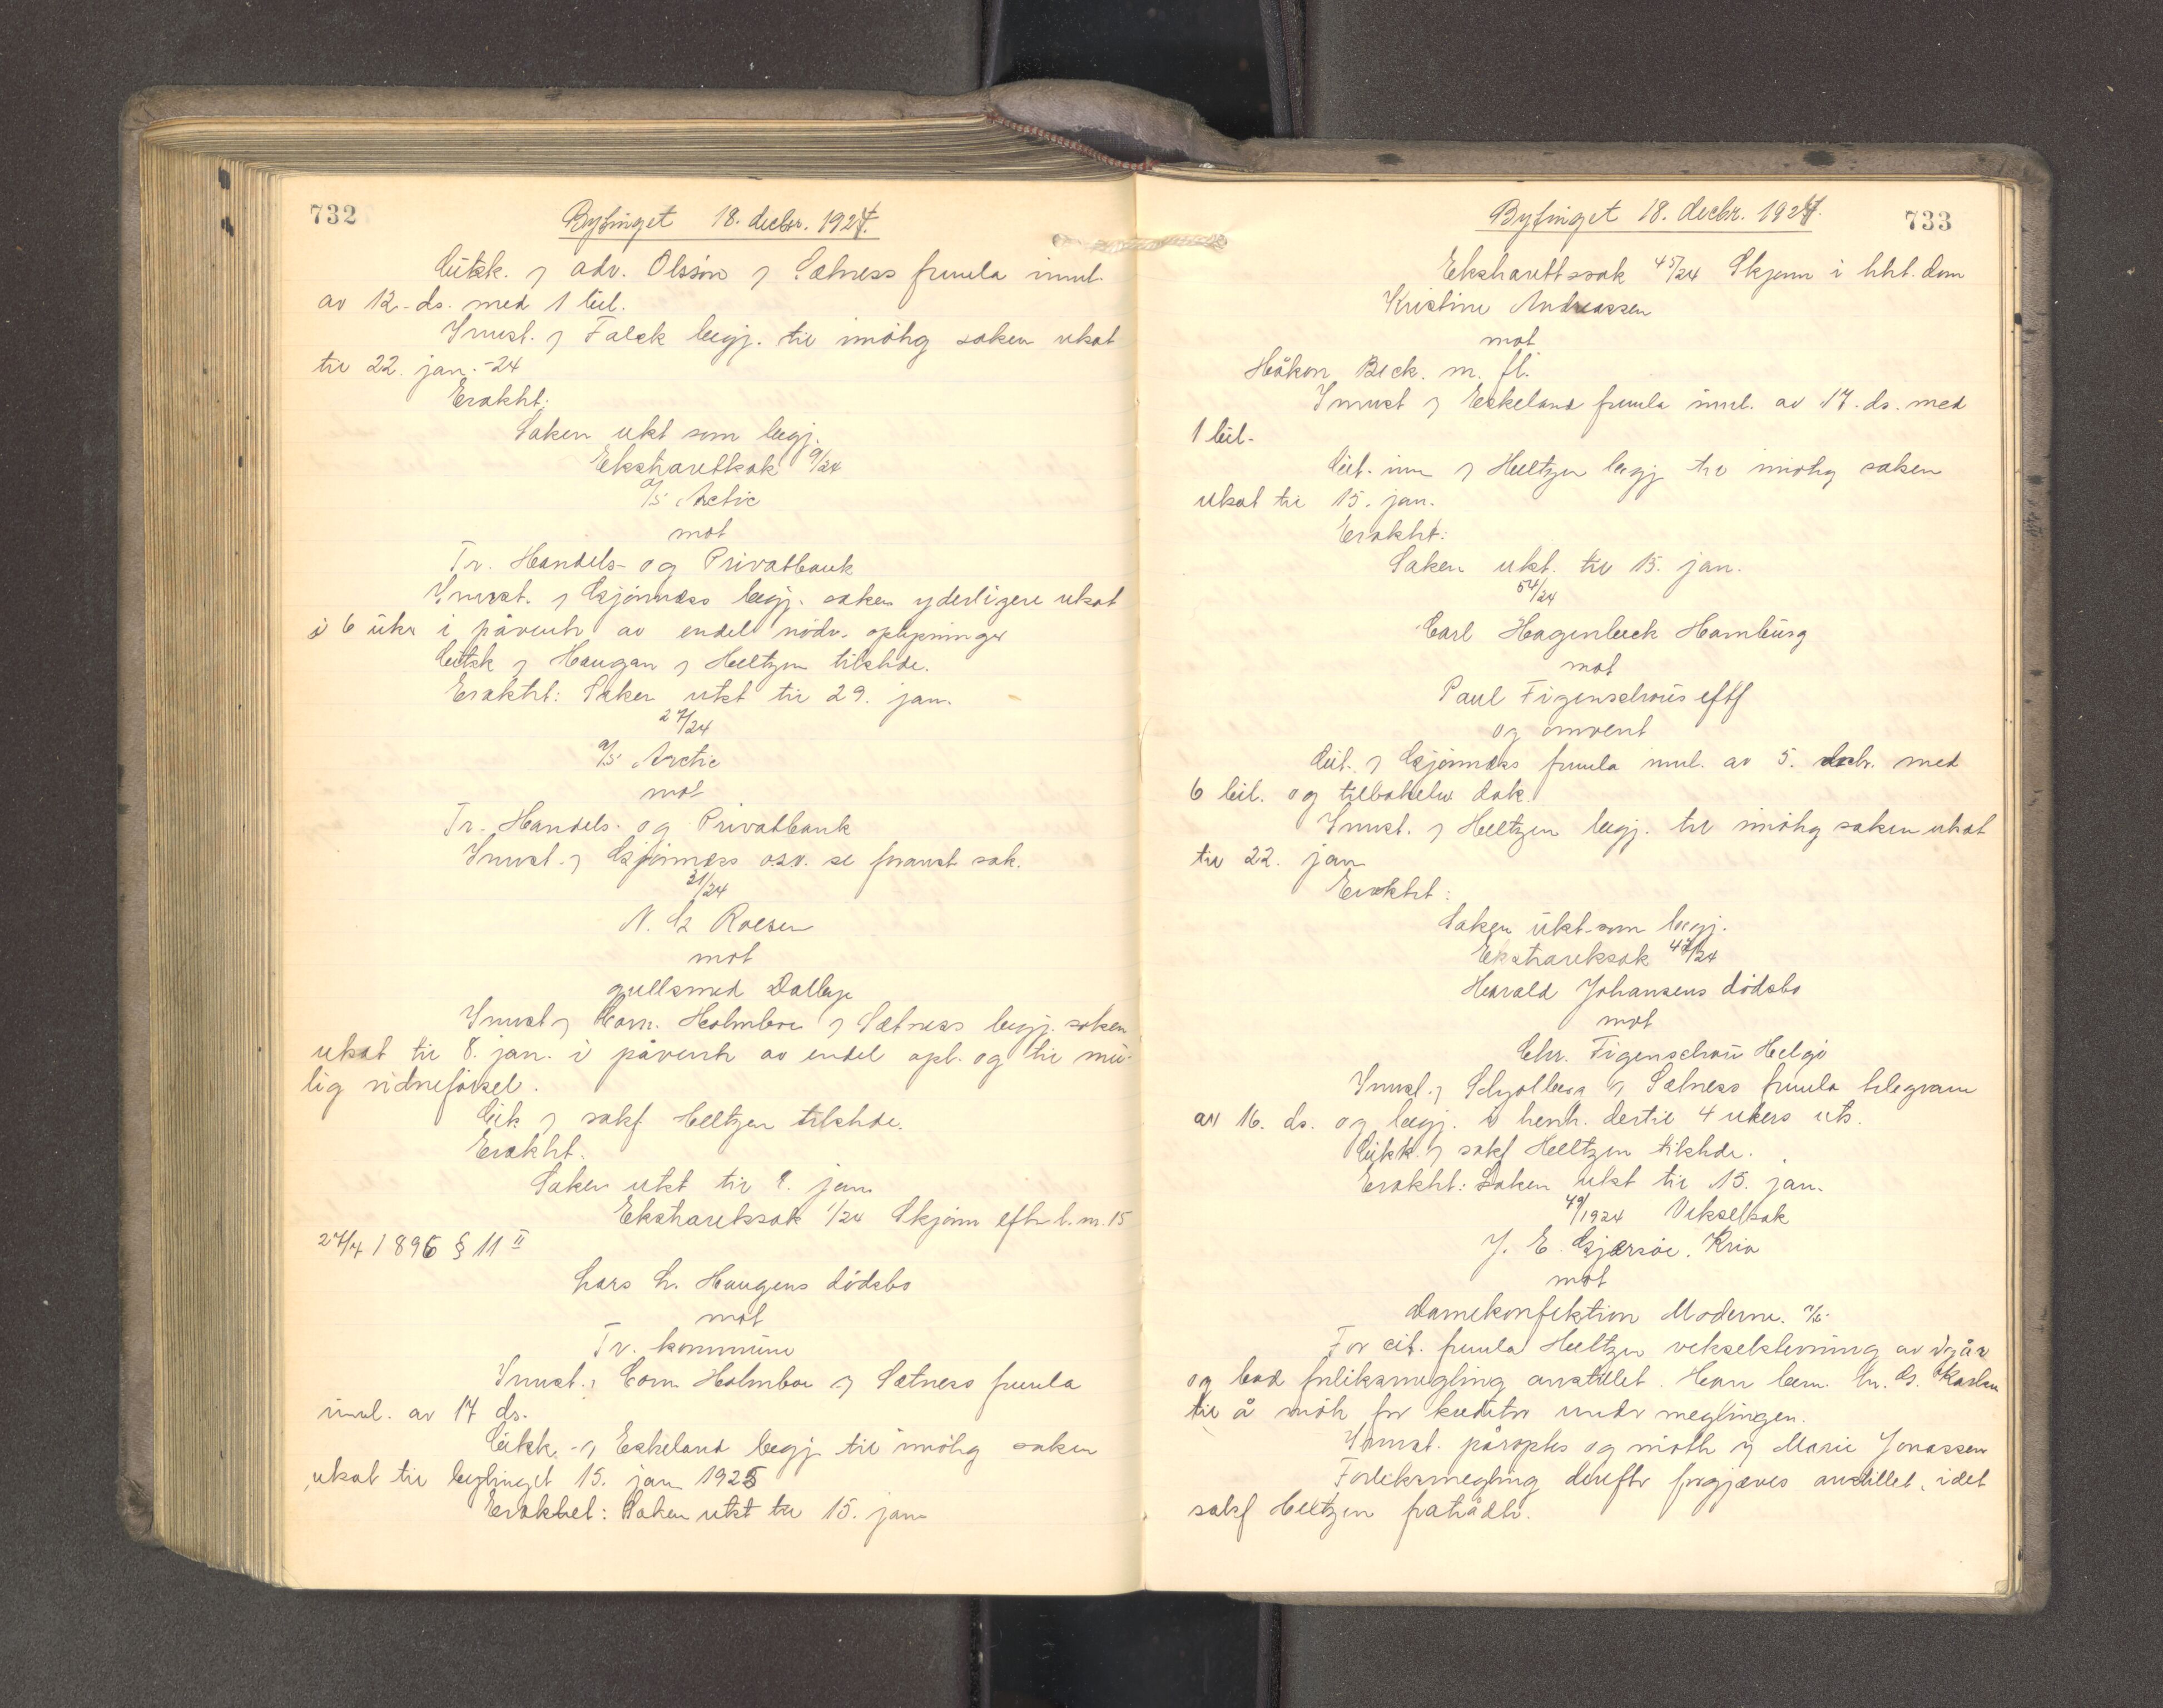 732
Bytinget 18. decbr. 1924.
Citsk. v adv. Olsson v Sætness fremla innl.
av 12. ds. med 1 bil.
Innst. v Falck begj. til imøtg saken utsat
til 22. jan. -24
Eraktet:
Saken utst som begj.
Ekstrarettssak 9/24
A/S Arctic
mot
Tr. Handels- og Privatbank
Innst. v Gjønnæss begj. saken yderligere utsat
i 6 uker i påvente av endel nødv. oplysninger
Citsk v Haugan v Heltzen tilstede.
Eraktet: Saken utst til 29. jan.
27/24
A/S Arctic
mot
Tr. Handels- og Privatbank
Innst. v Gjønnæss osv. se foranst sak.
31/24
N. G. Roesen
mot
gullsmed Dalberg
Innst v Corn. Holmboe v Sætness begj. saken
utsat til 8. jan. i påvente av endel opl. og til mu-
lig vidneførsel.
Cit v sakf. Heltzen tilstede.
Eraktet.
Saken utst til 8. jan.
Ekstraretssak 1/24 Skjønn efter l. m. 15
27/4 1896 § 11 II
Lars L. Haugens dødsbo
mot
Tr. kommune
Innst. v Corn Holmboe v Sætness fremla
innl. av 17 ds.
Citsk. v Eskeland begj til imøtg saken
utsat til bytinget 15. jan 1925
Eraktet: Saken utst til 15. jan
733
Bytinget 18. decbr. 1924.
Ekstrarettssak 45/24 Skjønn i hht. dom
Kristine Andreassen
mot
Håkon Beck. m. fl.
Innst v Eskeland fremla innl. av 17. ds. med
1 bil.
Cit. inn v Heltzen begj til imøtg saken
utsat til 15. jan.
Eraktet:
Saken utst. til 15. jan.
54/24
Carl Hagenbeck Hamburg
mot
Paul Figenschous eftf
og omvent
Cit. v Gjønnæss fremla innl. av 5. decbr. med
6 bil. og tilbakelev dok.
Innst. v Heltzen begj. til imøtg saken utsat
til 22. jan
Eraktet:
Saken utst. som begj.
Ekstraretssak 47/24
Harald Johansens dødsbo
mot
Chr. Figenschou Helgø
Innst. v Schjølberg v Sætness fremla telegram
av 16. ds. og begj. i henh. dertil 4 ukers uts.
Citsk. v sakf Heltzen tilstede.
Eraktet: Saken utst til 15. jan.
49/1924 Vekselsak
J. E. Gjersøe. Kria
mot
Damekonfektion Moderne. A/S.
For cit. fremla Heltzen vekselstevning av igår
og bad forliksmegling anstillet. Han bem. hr. ds. Karlsen
til å møte for kreditor under meglingen.
Innst. påroptes og møtte v Marie Jonassen
Forliksmegling derefter forgjæves anstillet, idet
sakf Heltzen fratrådte.